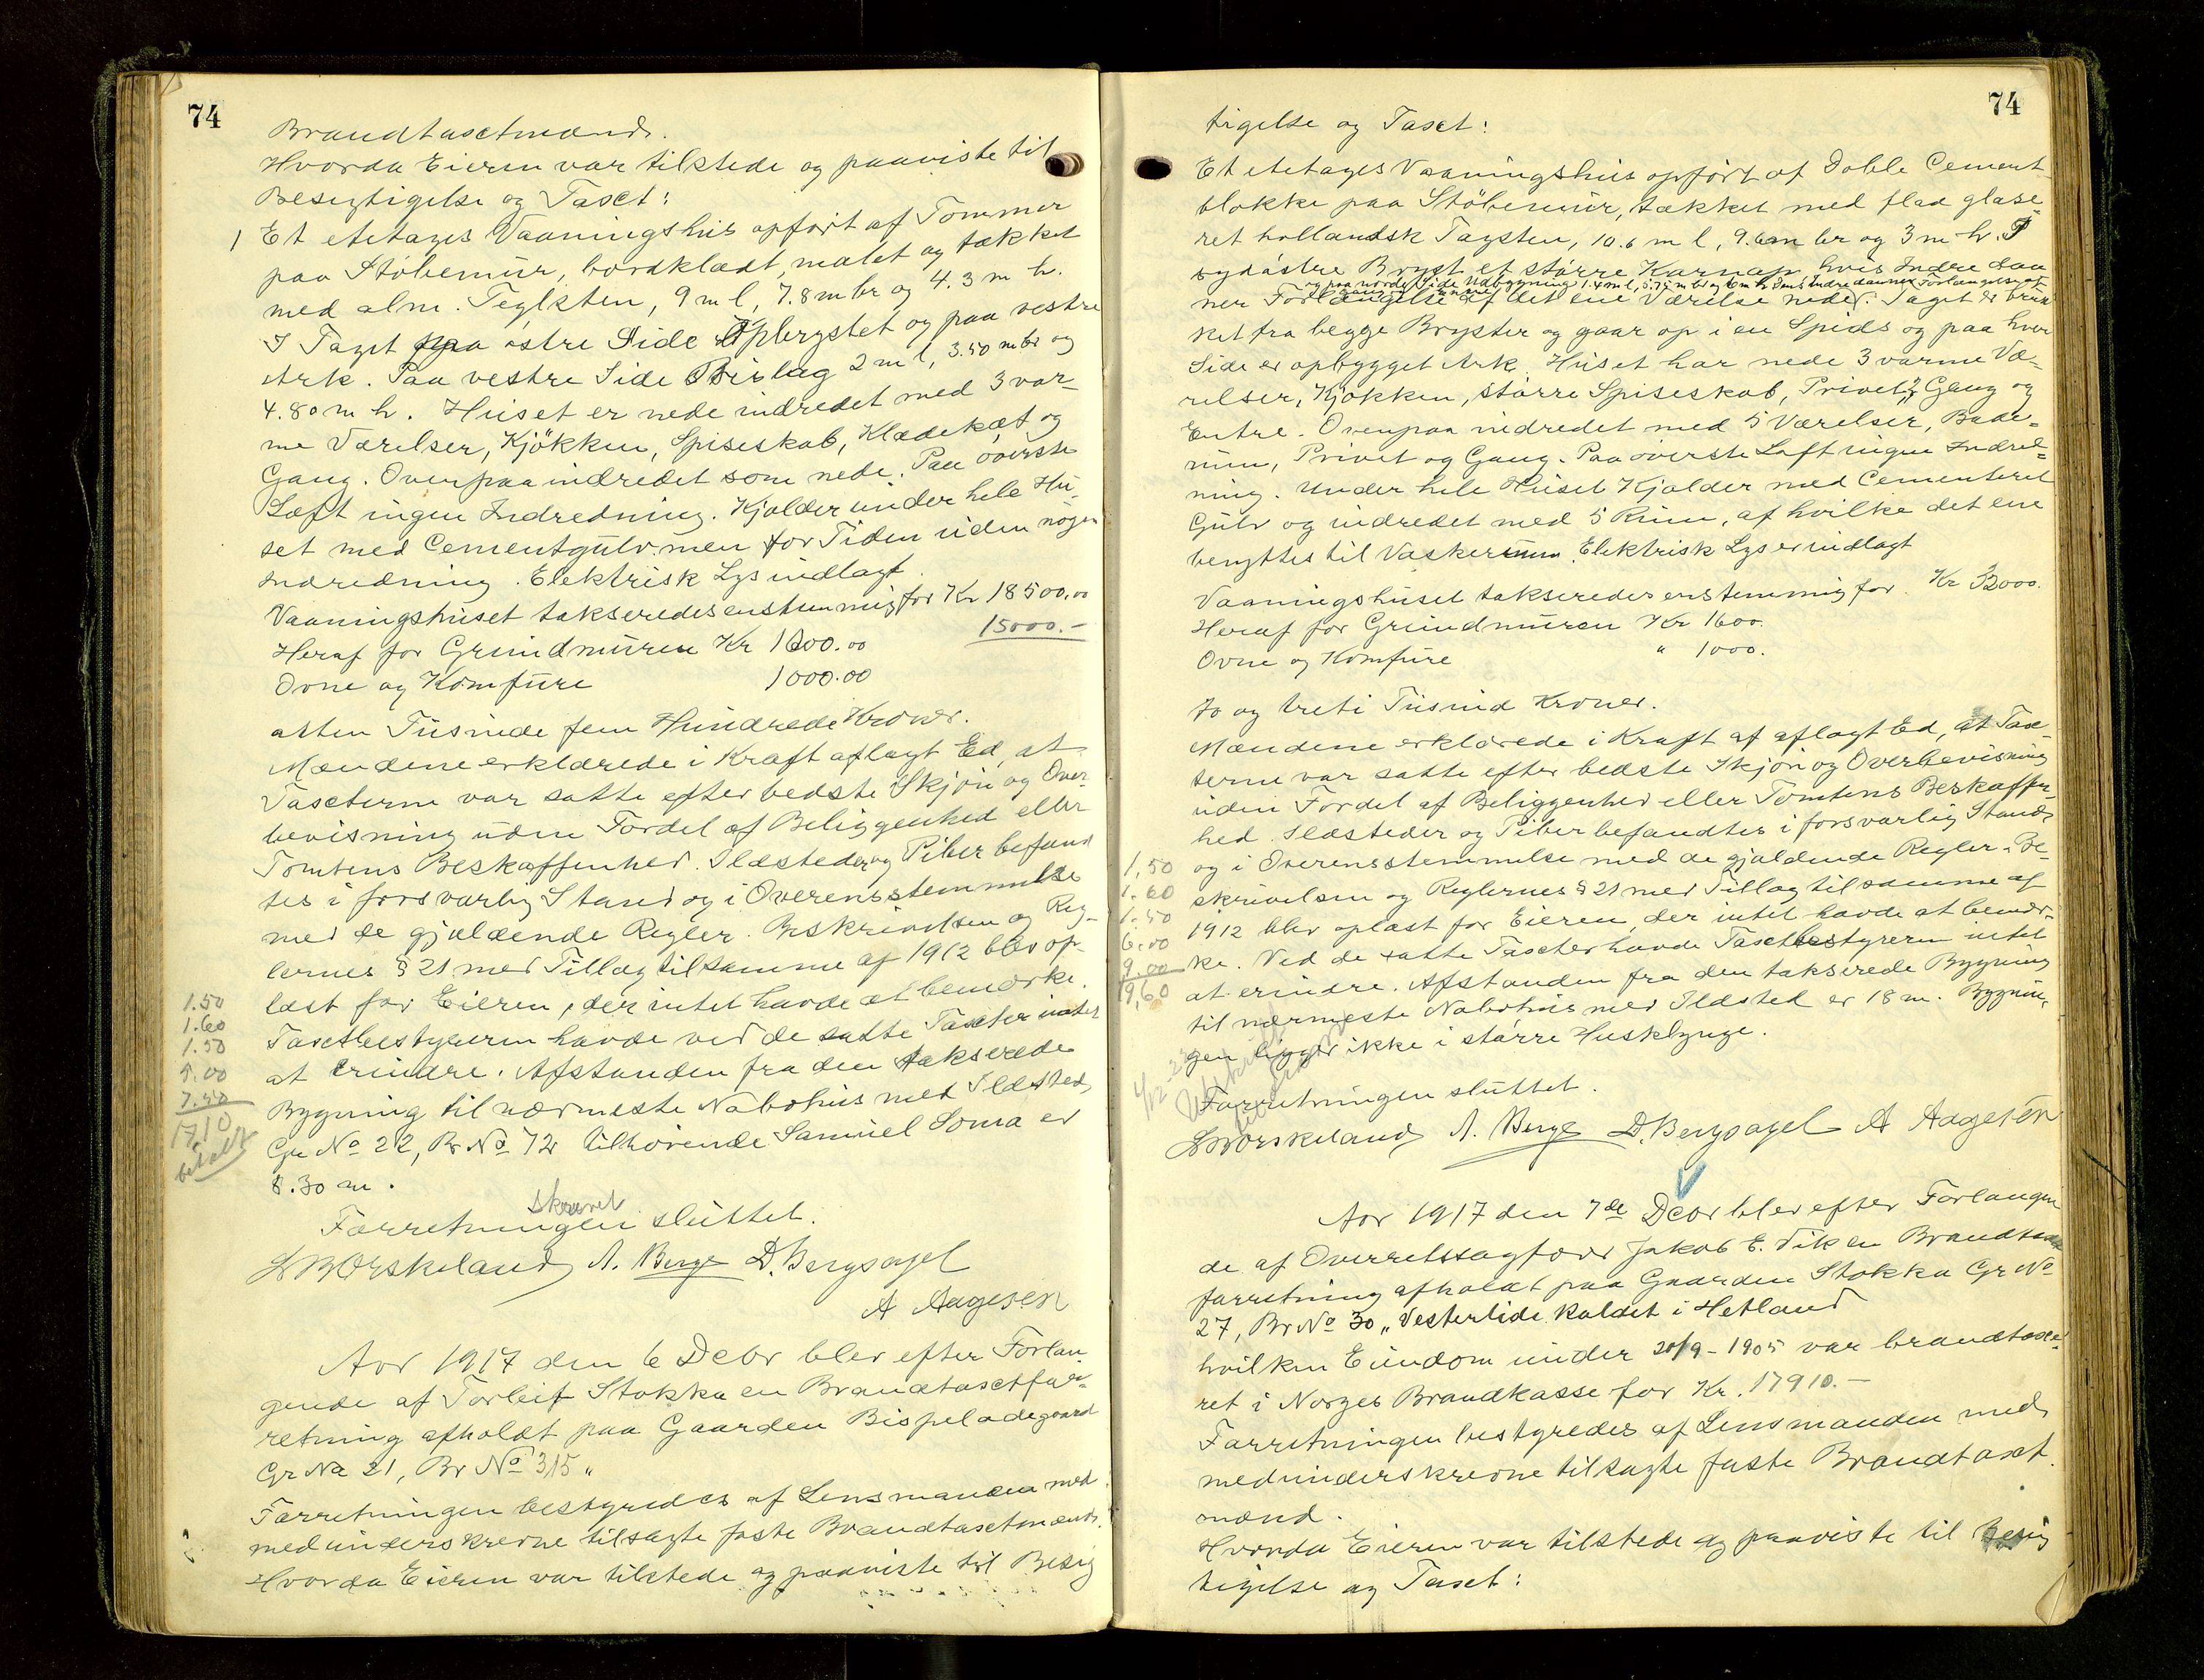 74
Brandtaxtmænd.
Hvorda Eieren var tilstede og paaviste til
Besigtigelse og Taxt:
1 Et etetages Vaaningshus opført af Tømmer
paa Støbemur, bordklædt, malet og tækket
med alm. Teglsten, 9 m l, 7.8 m br og 4.3 m h.
I Taget paa østre Side Opbrystet og paa vestre
Ark. Paa vestre Side Bislag 2 m l, 3.50 m br og
4.80 m h. Huset er nede indredet med 3 var-
me Værelser, Kjøkken, Spiseskab, Klædekot og
Gang. Ovenpaa indredet som nede. Paa øverste
Loft ingen Indredning. Kjælder under hele Hu-
set med Cementgulv men for Tiden uden nogen
Indredning. Elektrisk Lys indlagt.
Vaaningshuset takseredes enstemmig for Kr 18500,00
15000.-
Heraf for Grundmuren Kr 1600.00
Ovne og Komfure 1000.00
atten Tusinde fem Hundrede Kroner.
Mændene erklærede i Kraft aflagt Ed, at
Taxterne var satte efter bedste Skjøn og Over-
bevisning uden Fordel af Beliggenhed eller
Tomtens Beskaffenhed. Ildsteder og Piber befand
tes i forsvarlig Stand og i Overensstemmelse
med de gjældende Regler. Beskrivelsen og Reg-
lernes § 21 med Tillæg til samme af 1912 blev op-
læst for Eieren, der intet havde at bemærke.
Taxtbestyreren havde ved de satte Taxter intet
at erindre. Afstanden fra den takserede
Bygning til nærmeste Nabohus med Ildsted,
Gr No 22, Br No 72 tilhørende Samuel Soma er
8.30 m.
1.50
1.60
1.50
5.00
7.50
17,10
betalt
skrevet
Forretningen sluttet.
A. Berge D. Bergsagel
A Aagesen
Aar 1917 den 6 Decbr blev efter Forlan-
gende af Torleif Stokka en Brandtaxtfor-
retning afholdt paa Gaarden Bispeladegaard
Gr No 21, Br No 315 "
Forretningen bestyredes af Lensmanden med
medunderskrevne tilsagte faste Brandtaxtmænd.
Hvorda Eieren var tilstede og paaviste til Besig
74
tigelse og Taxt:
Et etetages Vaaningshus opført af Doble Cement
blokke paa Støbemur, tækket med flad glase-
ret hollandsk Tagsten, 10.6 m l, 9.6 m br og 3 m h. I
sydøstre Bryst et større Karnap hvis Indre dan
og paa nordre Side Udbygning 1.4 m l, 5.75 m br og 6 m h. Dens Indre danner Forlængelse af
Gang og
ner Forlængelse af det ene Værelse nede. Taget er bruk
ket fra begge Bryster og gaar op i en Spids og paa hver
Side er opbygget Ark. Huset har nede 3 varme Væ-
relser, Kjøkken, større Spiseskab, Privet, 2 Gang og
Entre. Ovenpaa indredet med 5 Værelser, Bade-
rum, Privet og Gang. Paa øverste Loft ingen Indred-
ning. Under hele Huset Kjælder med Cementeret
Gulv og indredet med 5 Rum, af hvilke det ene
benyttes til Vaskerum. Elektrisk Lys er indlagt
Vaaningshuset takseredes enstemmig for Kr 32000.
Heraf for Grundmuren Kr 1600.
Ovne og Komfure " 1000.
To og treti Tusind Kroner.
Mændene erklærede i Kraft af aflagt Ed, at Tax-
terne var satte efter bedste Skjøn og Overbevisning
uden Fordel af Beliggenhed eller Tomtens Beskaffen-
hed. Ildsteder og Piber befandtes i forsvarlig Stand
og i Overensstemmelse med de gjældende Regler. Be-
skrivelsen og Reglernes § 21 med Tillæg til samme af
1912 blev oplæst for Eieren, der intet havde at bemær-
ke. Ved de satte Taxter havde Taxtbestyreren intet
at erindre. Afstanden fra den takserede Bygning
til nærmeste Nabohus med Ildsted er 18 m. Bygnin-
gen ligger ikke i større Husklynge.
1,50
1.60
1.50
6.00
9.00
19,60
Forretningen sluttet.
A. Berge D. Bergsagel A Aagesen
Aar 1917 den 7de Decbr blev efter Forlangen
de af Overretssagfører Jakob E. Vik en Brandtaxt
forretning afholdt paa Gaarden Stokka Gr No
27, Br No 30 "Vesterlide kaldet i Hetland
hvilken Eiendom under 20/9-1905 var brandtaxe-
ret i Norges Brandkasse for Kr. 17910.-
Forretningen bestyredes af Lensmanden med
medunderskrevne tilsagte faste Brandtaxt-
mænd.
Hvorda Eieren var tilstede og paaviste til Besig
tigelse og Taxt: